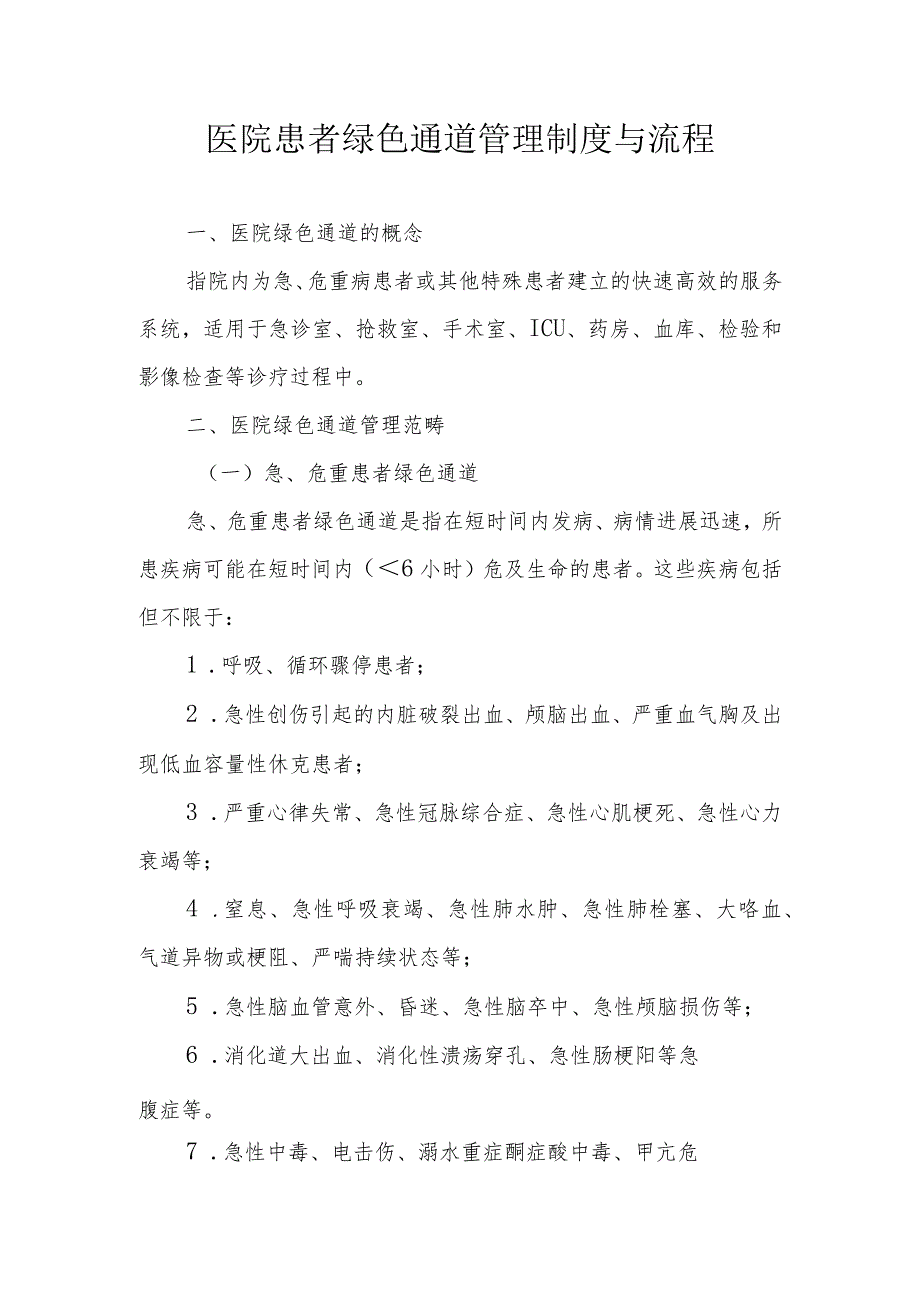 医院患者绿色通道管理制度与流程
一、医院绿色通道的概念
指院内为急、危重病患者或其他特殊患者建立的快速高效的服务
系统，适用于急诊室、抢救室、手术室、ICU、药房、血库、检验和
影像检查等诊疗过程中。
二、医院绿色通道管理范畴
（一）急、危重患者绿色通道
急、危重患者绿色通道是指在短时间内发病、病情进展迅速，所
患疾病可能在短时间内（＜6小时）危及生命的患者。这些疾病包括
但不限于：
1 .呼吸、循环骤停患者；
2 .急性创伤引起的内脏破裂出血、颅脑出血、严重血气胸及出
现低血容量性休克患者；
3 .严重心律失常、急性冠脉综合症、急性心肌梗死、急性心力
衰竭等；
4 .窒息、急性呼吸衰竭、急性肺水肿、急性肺栓塞、大咯血、
气道异物或梗阻、严喘持续状态等；
5 .急性脑血管意外、昏迷、急性脑卒中、急性颅脑损伤等；
6 .消化道大出血、消化性溃疡穿孔、急性肠梗阳等急
腹症等。
7 .急性中毒、电击伤、溺水重症酮症酸中毒、甲亢危